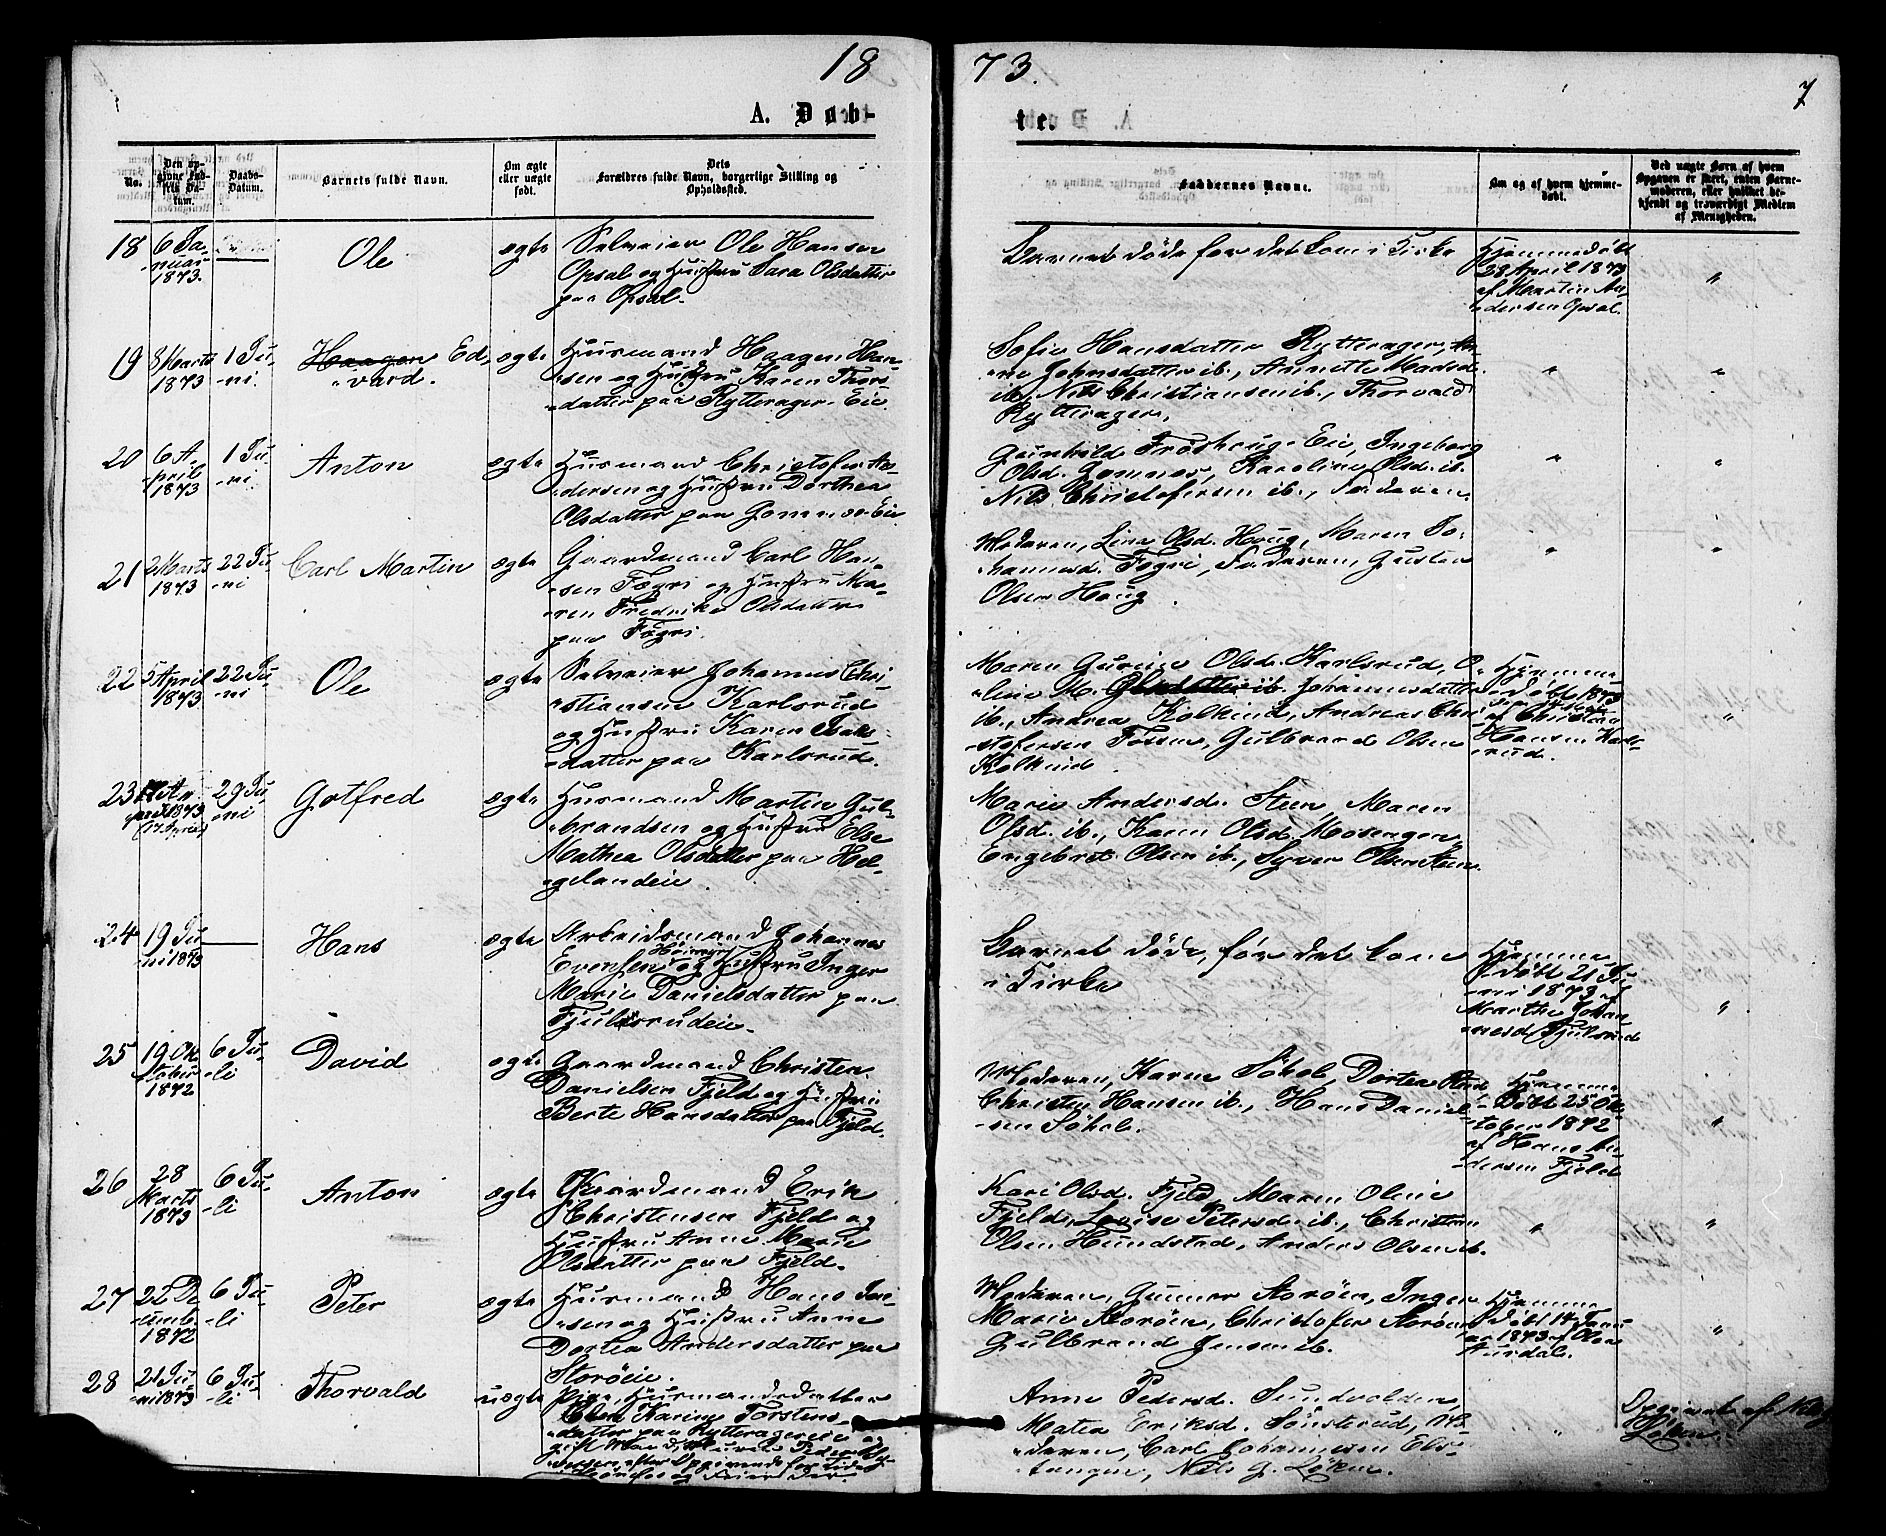 18 73.
7
A. Døb-
te.
No.
Den op-
givne Fød-
sels Da-
tum.
Daabs-
Datum.
Barnets fulde Navn.
Om ægte
eller uægte
født.
Dets
Forældres fulde Navn, borgerlige Stilling og
Opholdssted.
Faddernes Navne.
Om og af hvem hjemme-
døbt.
Ved uægte Børn af hvem
Opgaven er skeet, enten Barne-
moderen, eller hvilket be-
kjendt og troværdigt Medlem
af Menigheden.
18
6 Ja-
nuar
1873.
Ole
ægte
Selveier Ole Hansen
Opsal og Hustru Sara Olsdatter
paa Opsal.
Barnet døde før det kom i Kirke
Hjemmedøbt
28 April 1873
af Martin An-
dersen Opsal.
"
19
8 Marts
1873
1 Ju-
-ni.
Haagen Ed-
-vard.
ægte
Husmand Haagen Han-
-sen og Hustru Karen Thors-
-datter paa Rytterager-Eie
Sofie Hansdatter Rytterager, An-
-ne Johnsdatter ib., Annette Madsd.
ib., Nils Christiansen ib., Thorvald
Rytterager.
"
"
20
6 A-
-pril
1873
1 Ju-
-ni
Anton
ægte
Husmand Christofer An-
-dersen og Hustru Dorthea
Olsdatter paa Gomnæs-Eie
Gunhild Frøshaug-Eie, Ingeborg
Olsd. Gomnæs, Karoline Olsd. ib.
Nils Christofersen ib., Faderen.
"
"
21
2 Marts
1873
22 Ju-
-ni
Carl Martin
ægte
Gaardmand Carl Han-
-sen Fægri og Hustru Ma-
-ren Fredrikke Olsdatter
paa Fægri.
Moderen, Lina Olsd. Haug, Maren Jo-
-hannesd. Fægri, Faderen, Gustav
Olsen Haug
"
"
22
5 April
1873
22 Ju-
-ni
Ole
ægte
Selveier Johannes Chri-
-stiansen Karlsrud
og Hustru Karen Isaks-
-datter paa Karlsrud.
Maren Gurine Olsd. Karlsrud, O-
-line M. Johannesdatter
ib., Andrea Kolkind, Andreas Chri-
-stofersen Fossen, Gulbrand Olsen
Kolkind.
Hjemme-
-døbt 1873
af Christian
Hansen Karls-
-rud.
"
23
1873
(17 April)
29 Ju-
-ni
Gotfred
ægte
Husmand Martin Gul-
-brandsen og Hustru Else
Mathea Olsdatter paa Hel-
-gelandeie.
Marie Andersd. Steen, Maren
Olsd. ib., Karen Olsd. Mosengen,
Engebret Olsen ib., Syver Olsen Steen.
24
19 Ju-
-ni 1873
Hans
ægte
Arbeidsmand Johannes
Evensen og Hustru Inger
Marie Danielsdatter paa
Fjulsrudeie.
Barnet døde, før det kom
i Kirke
Hjemme-
døbt 21 Ju-
-ni 1873 af
Marthe Johan-
-nesd. Fjulsrud
"
25
19 Ok-
-tober
1872
6 Ju-
-li
David
ægte
Gaardmand Christen
Danielsen Fjeld og Hustru
Berte Hansdatter paa Fjeld.
Moderen, Karen Søhol, Dorte
Christen Hansen ib., Hans Daniel-
-sen Søhol.
Hjemme-
-døbt 25 Ok-
-tober 1872
af Hans An-
-dersen Fjeld
"
26
28
Marts
1873
6 Ju-
-li
Anton
ægte
Gaardmand Erik
Christensen Fjeld og
Hustru Anne Marie
Olsdatter paa Fjeld.
Kari Olsd. Fjeld, Maren Olsd.
Fjeld, Lovise Petersd. ib., Christian
Olsen Hundstad, Anders Olsen ib.
"
"
27
22 De-
-cemb.
1872
6 Ju-
-li
Peter
ægte
Husmand Hans Jen-
-sen og Hustru Anne
Dortea Andersdatter paa
Storøeie.
Moderen, Gunner Storøen, Inger
Marie Storøen, Christofer Storøen
Gulbrand Jensen ib.
Hjemme-
døbt 14 Janu-
ar 1873 af Ole
Aurdal.
"
28
21 Ju-
ni 1873
6 Ju-
-li
Thorvald
uægte
Pige, Husmandsdatter
Karine Torstens-
-datter paa Rytteragereie og
gift Mand, Peder
-dersen, efter Opgivende for Tiden
Anne Pedersd. Sundvolden,
Matea Eriksd. Sønsterud, Mo-
-deren, Carl Johannesen Els-
-tangen, Nils G. Løken.
"
Opgivet af Nils
Løken.